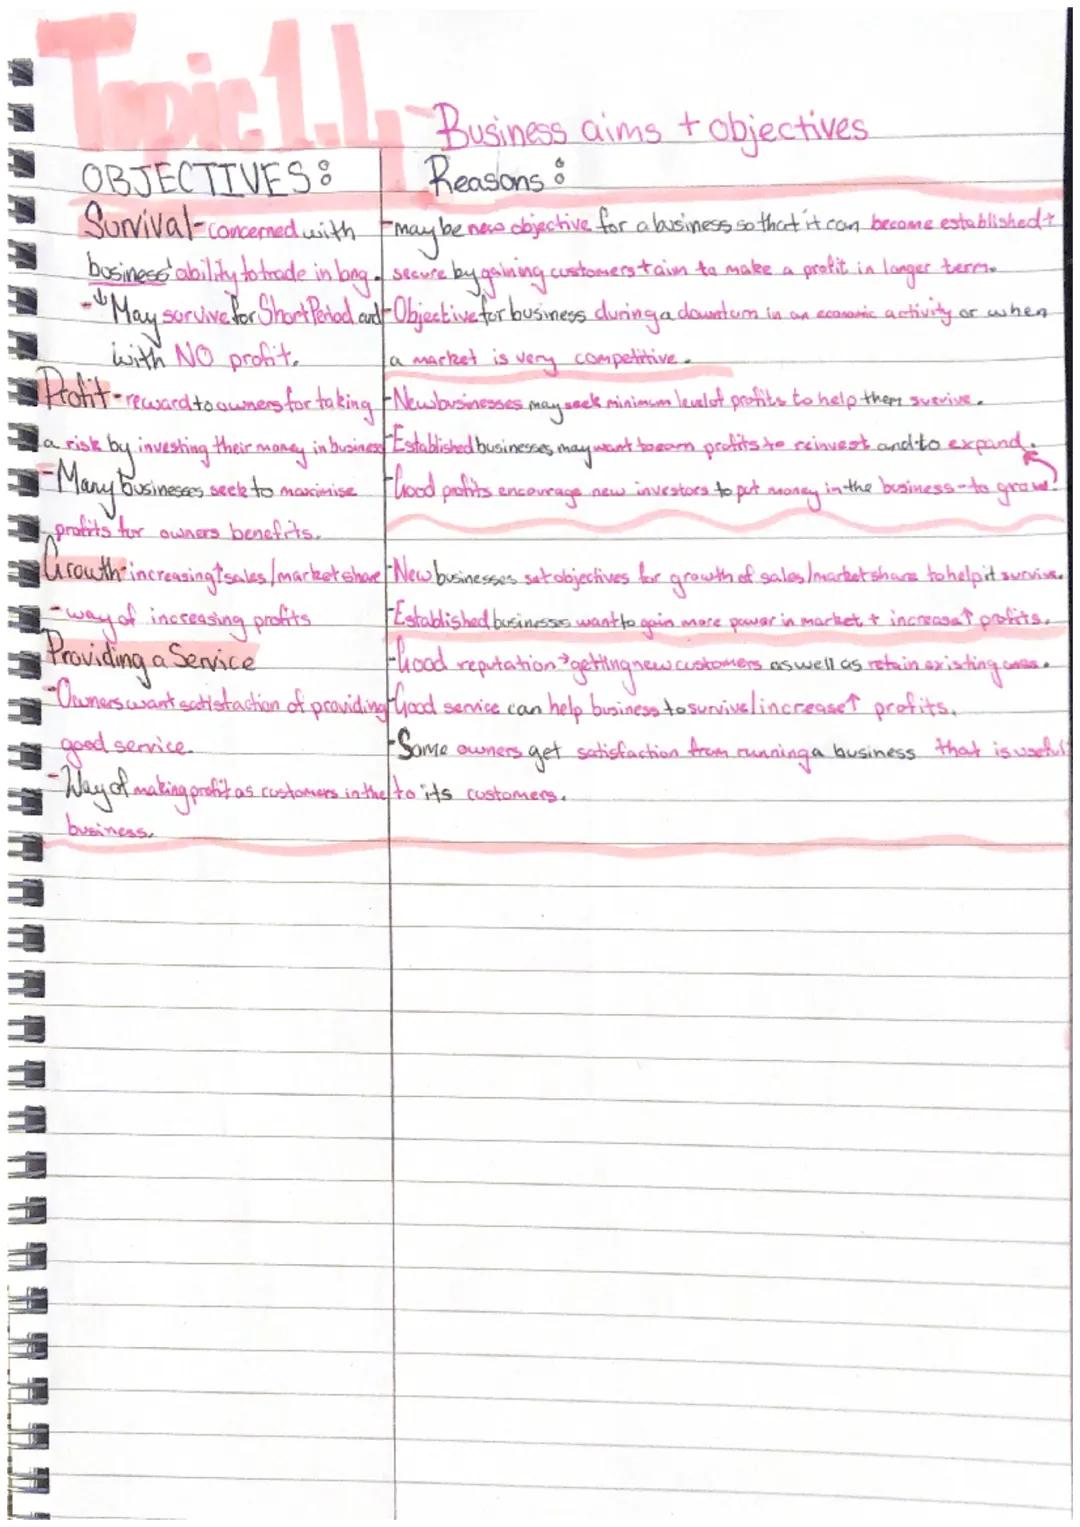 Topic 1.4 Business aims + objectives
OBJECTIVES: Reasons:
Survival - concerned with
business' ability to trade in long.
- ↓ May survive for Short Period and
with NO profit.
- may be new objective for a business so that it can become established +
secure by gaining customers + aim to make a profit in longer term.
- Objective for business during a downturn in an economic activity or when
a market is very competitive.
Profit - reward to owners for taking
a risk by investing their money in business
- Many businesses seek to maximise
profits for owners benefits.
- New businesses may seek minimum level of profits to help them survive.
- Established businesses may want to earn profits to reinvest and to expand.
- Good profits encourage new investors to put money in the business - to grow.
Growth - increasing↑ sales/market share
- way of increasing profits
- New businesses set objectives for growth of sales/market share to help it survive.
- Established businesses want to gain more power in market + increase↑ profits.
Providing a Service
- Owners want satisfaction of providing
good service.
- Way of making profit as customers in the
business.
- Good reputation → getting new customers as well as retain existing ones.
- Good service can help business to survive/increase↑ profits.
- Some owners get satisfaction from running a business that is useful
to its customers.